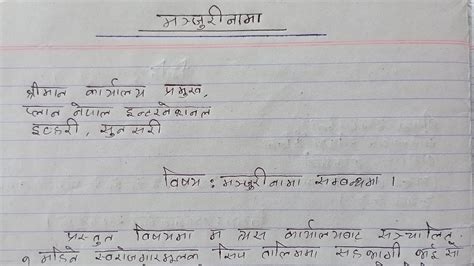 मञ्जुरीनामा
श्रीमान कार्यालय प्रमुख,
प्लान नेपाल इन्टरनेशनल
इटहरी, सुनसरी
विषय: मञ्जुरीनामा सम्बन्धमा ।
प्रस्तुत विषयमा म त्यस कार्यालयबाट सञ्चालित
स्वरोजगारमूलक सिप तालिममा सहभागी